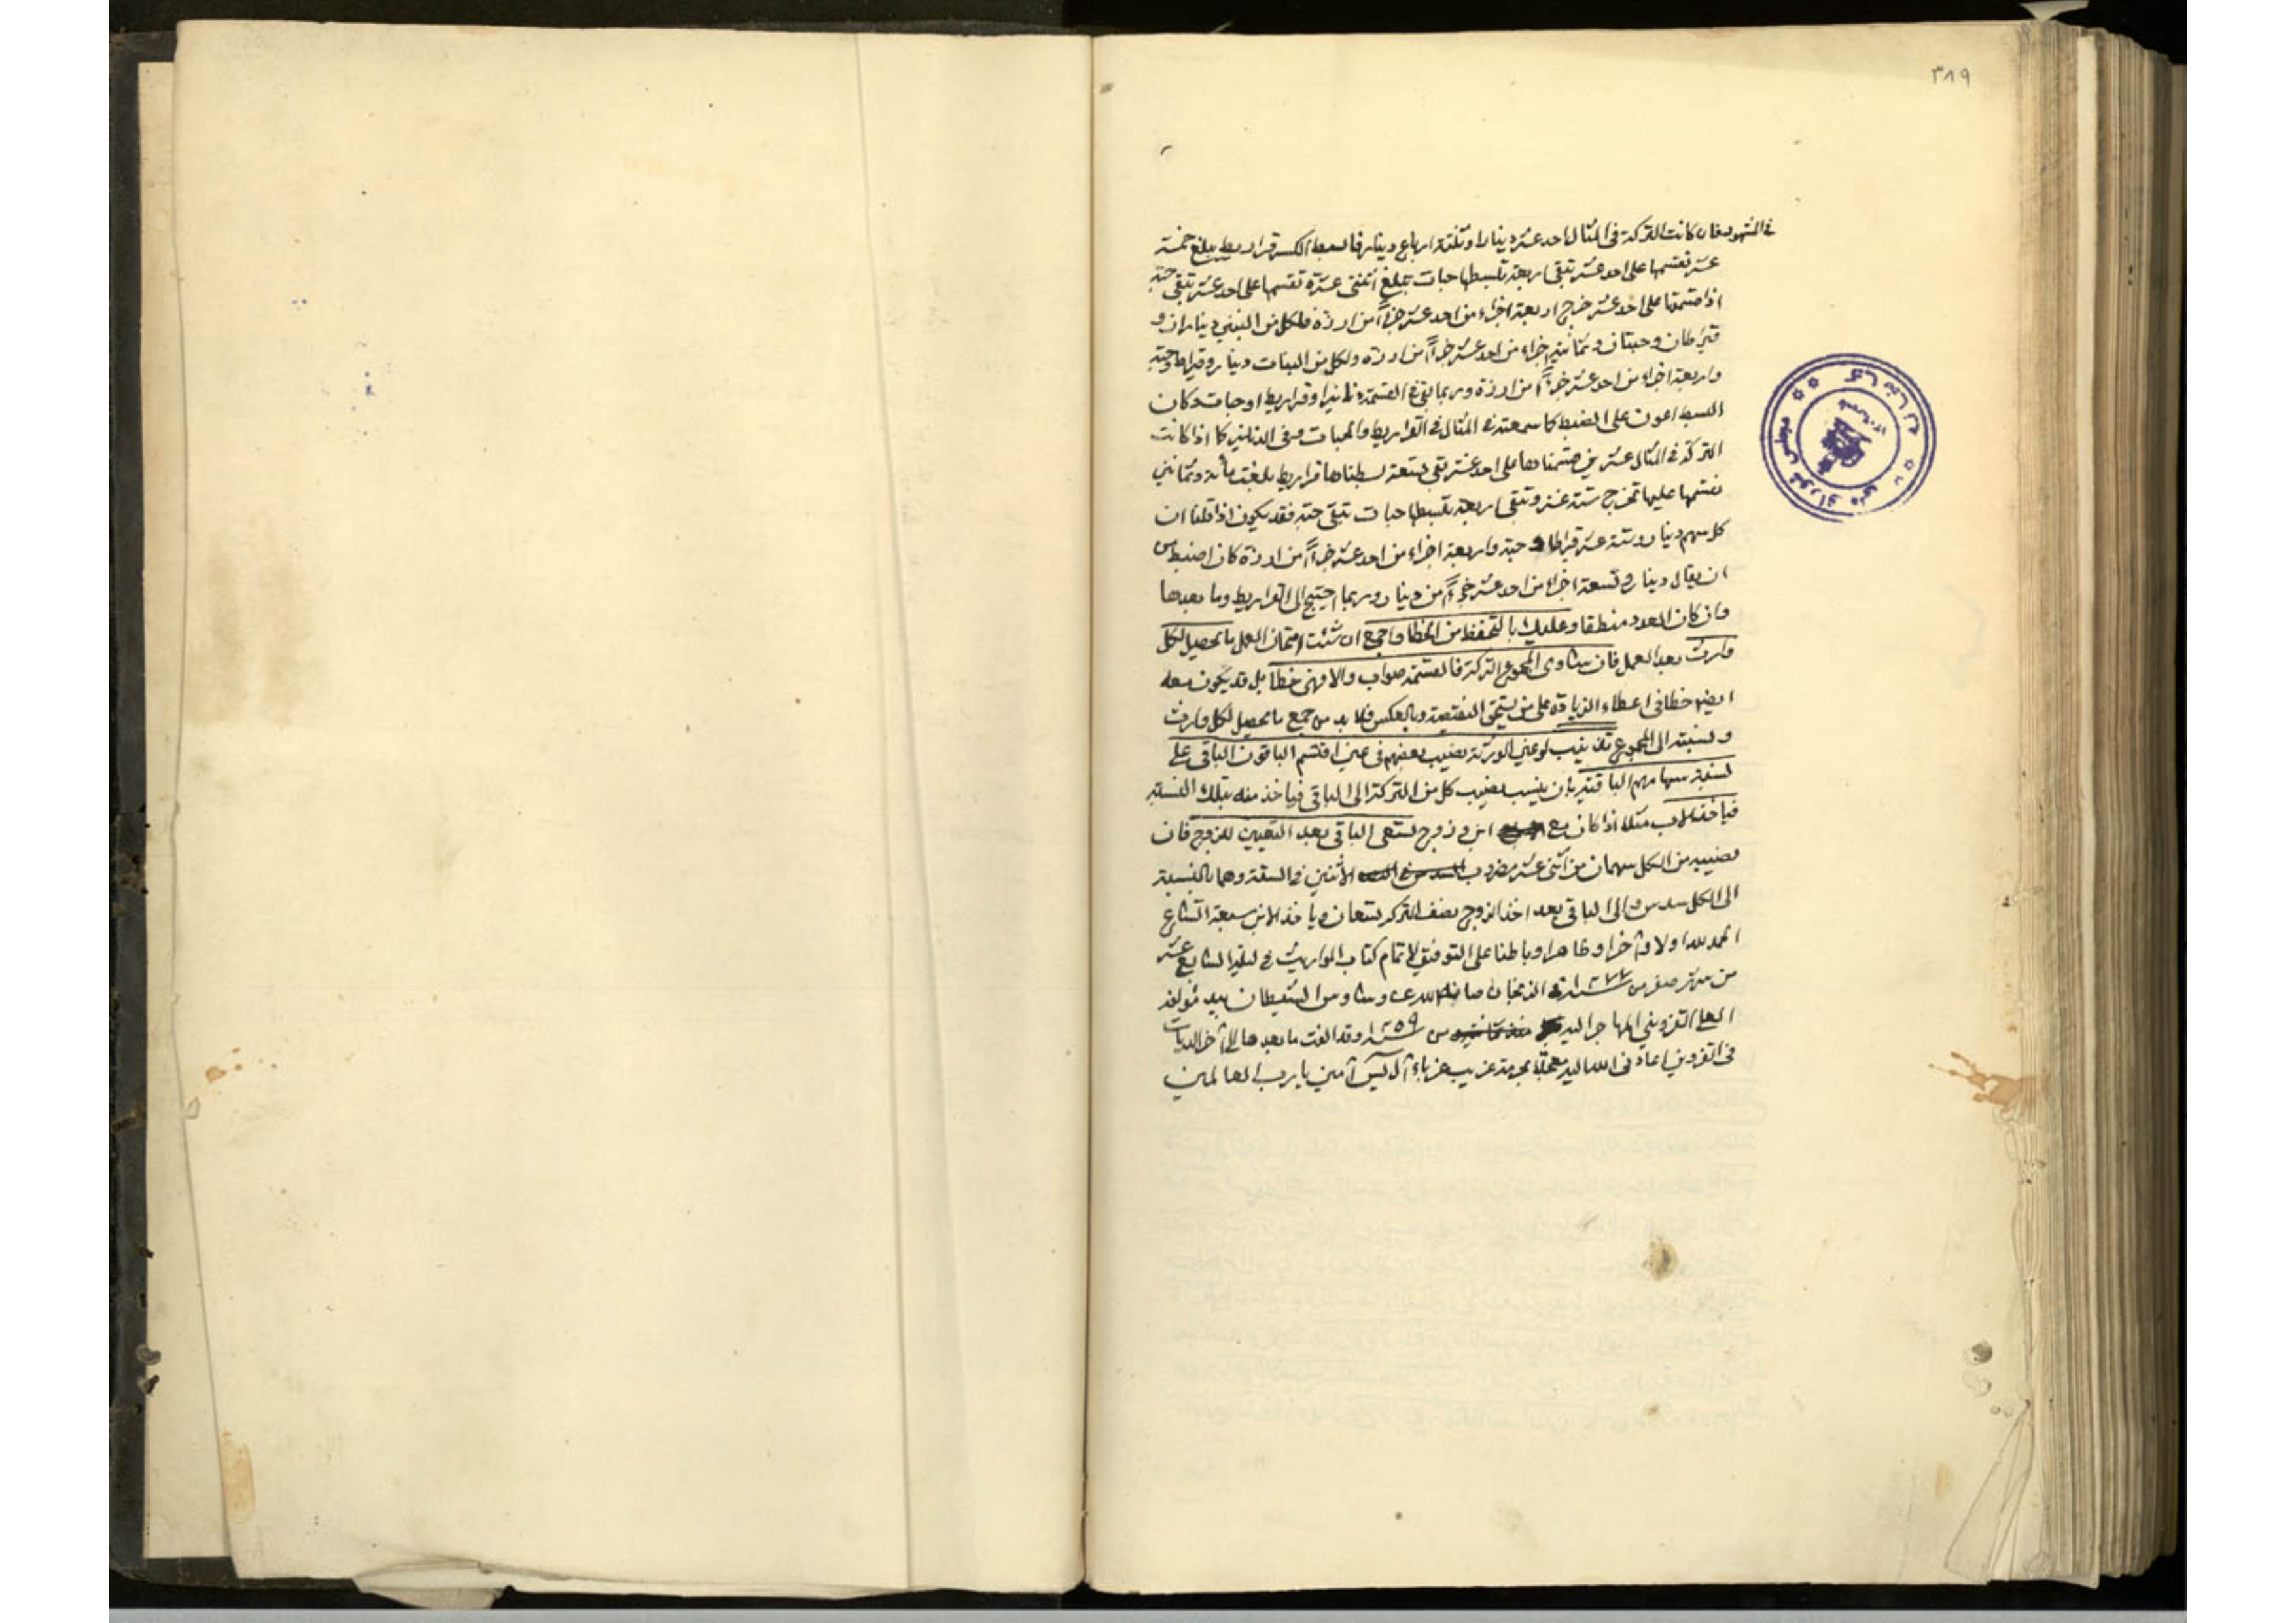 ٣٨٩
في المشهود فان كانت التركة في المثال احد عشر دينارا وثلثة ارباع دينار فابسط الكسر قراريط يبلغ خمسة
عشر تقسمها على احد عشر تبقى اربعة تبسطها حبات تبلغ اثنتى عشرة تقسمها على احد عشر تبقى حبة
اذا قسمتها على احد عشر خرج اربعة اجزاء من احد عشر جزءاً من ارزة فلكل من البنين ديناران و
قيراطان وحبتان وثمانية اجزاء من احد عشر جزءاً من ارزة ولكل من البنات دينار وقيراط وحبة
واربعة اجزاء من احد عشر جزءاً من ارزة وربما بقى في القسمة دنانير او قراريط او حبات وكان
البسط اعون على الضبط كما سمعته في المثال في القراريط والحبات وفي الدنانير كما اذا كانت
التركة في المثال عشرين قسمنادها على احد عشر بقى تسعة بسطناها قراريط بلغت مأة وثمانين
نقسمها عليها تخرج ستة عشر وتبقى اربعة تبسطها حبات تبقى حبة فقد يكون اذا قلنا ان
كل سهم دينار وستة عشر قيراطا وحبة واربعة اجزاء من احد عشر جزءاً من ارزة كان اضبط من
ان يقال دينار وتسعة اجزاء من احد عشر جزءاً من دينار وربما احتيج الى القراريط وما بعدها
وان كان العدد منطقا وعليك بالتحفظ من الخطا واجمع ان شئت امتحان العمل ما يحصل لكل
وارث بعد العمل فان ساوى المجموع التركة فالقسمة صواب والا فهى خطا بل قد يكون معه
ايضا خطا في اعطاء الزيادة على من يستحق النقيصة وبالعكس فلا بد من جمع ما يحصل لكل وارث
ونسبته الى المجموع لو عين الورثة نصيب بعضهم في عين اقتسم الباقون الباقى على
نسبة سهامهم الباقية بان ينسب نصيب كل من التركة الى الباقى فياخذ منه بتلك النسبة
فياخذ الاب مثلا اذا كان مع ابن وزوج تسعى الباقى بعد التعيين للزوج فان
نصيبه من الكل سهمان من اثنى عشر مضروب الاثنين في الستة وهما بالنسبة
الى الكل سدس والى الباقى بعد اخذ الزوج تسعان وياخذ الابن سبعة اتساع
الحمد لله اولا وآخرا وظاهرا وباطنا على التوفيق لاتمام كتاب المواريث في السابع عشر
من شهر صفر من ١٢٧٧ صانه الله عن وساوس الشيطان بيد مؤلفه
العلى القزويني المهاجر اليه من ١٢٥٩ وقد الفت ما بعدها الى آخر الديات
في القزوين اعادنى الله اليه معجلا بحرمة غريب غرباء آل يس آمين يا رب العالمين